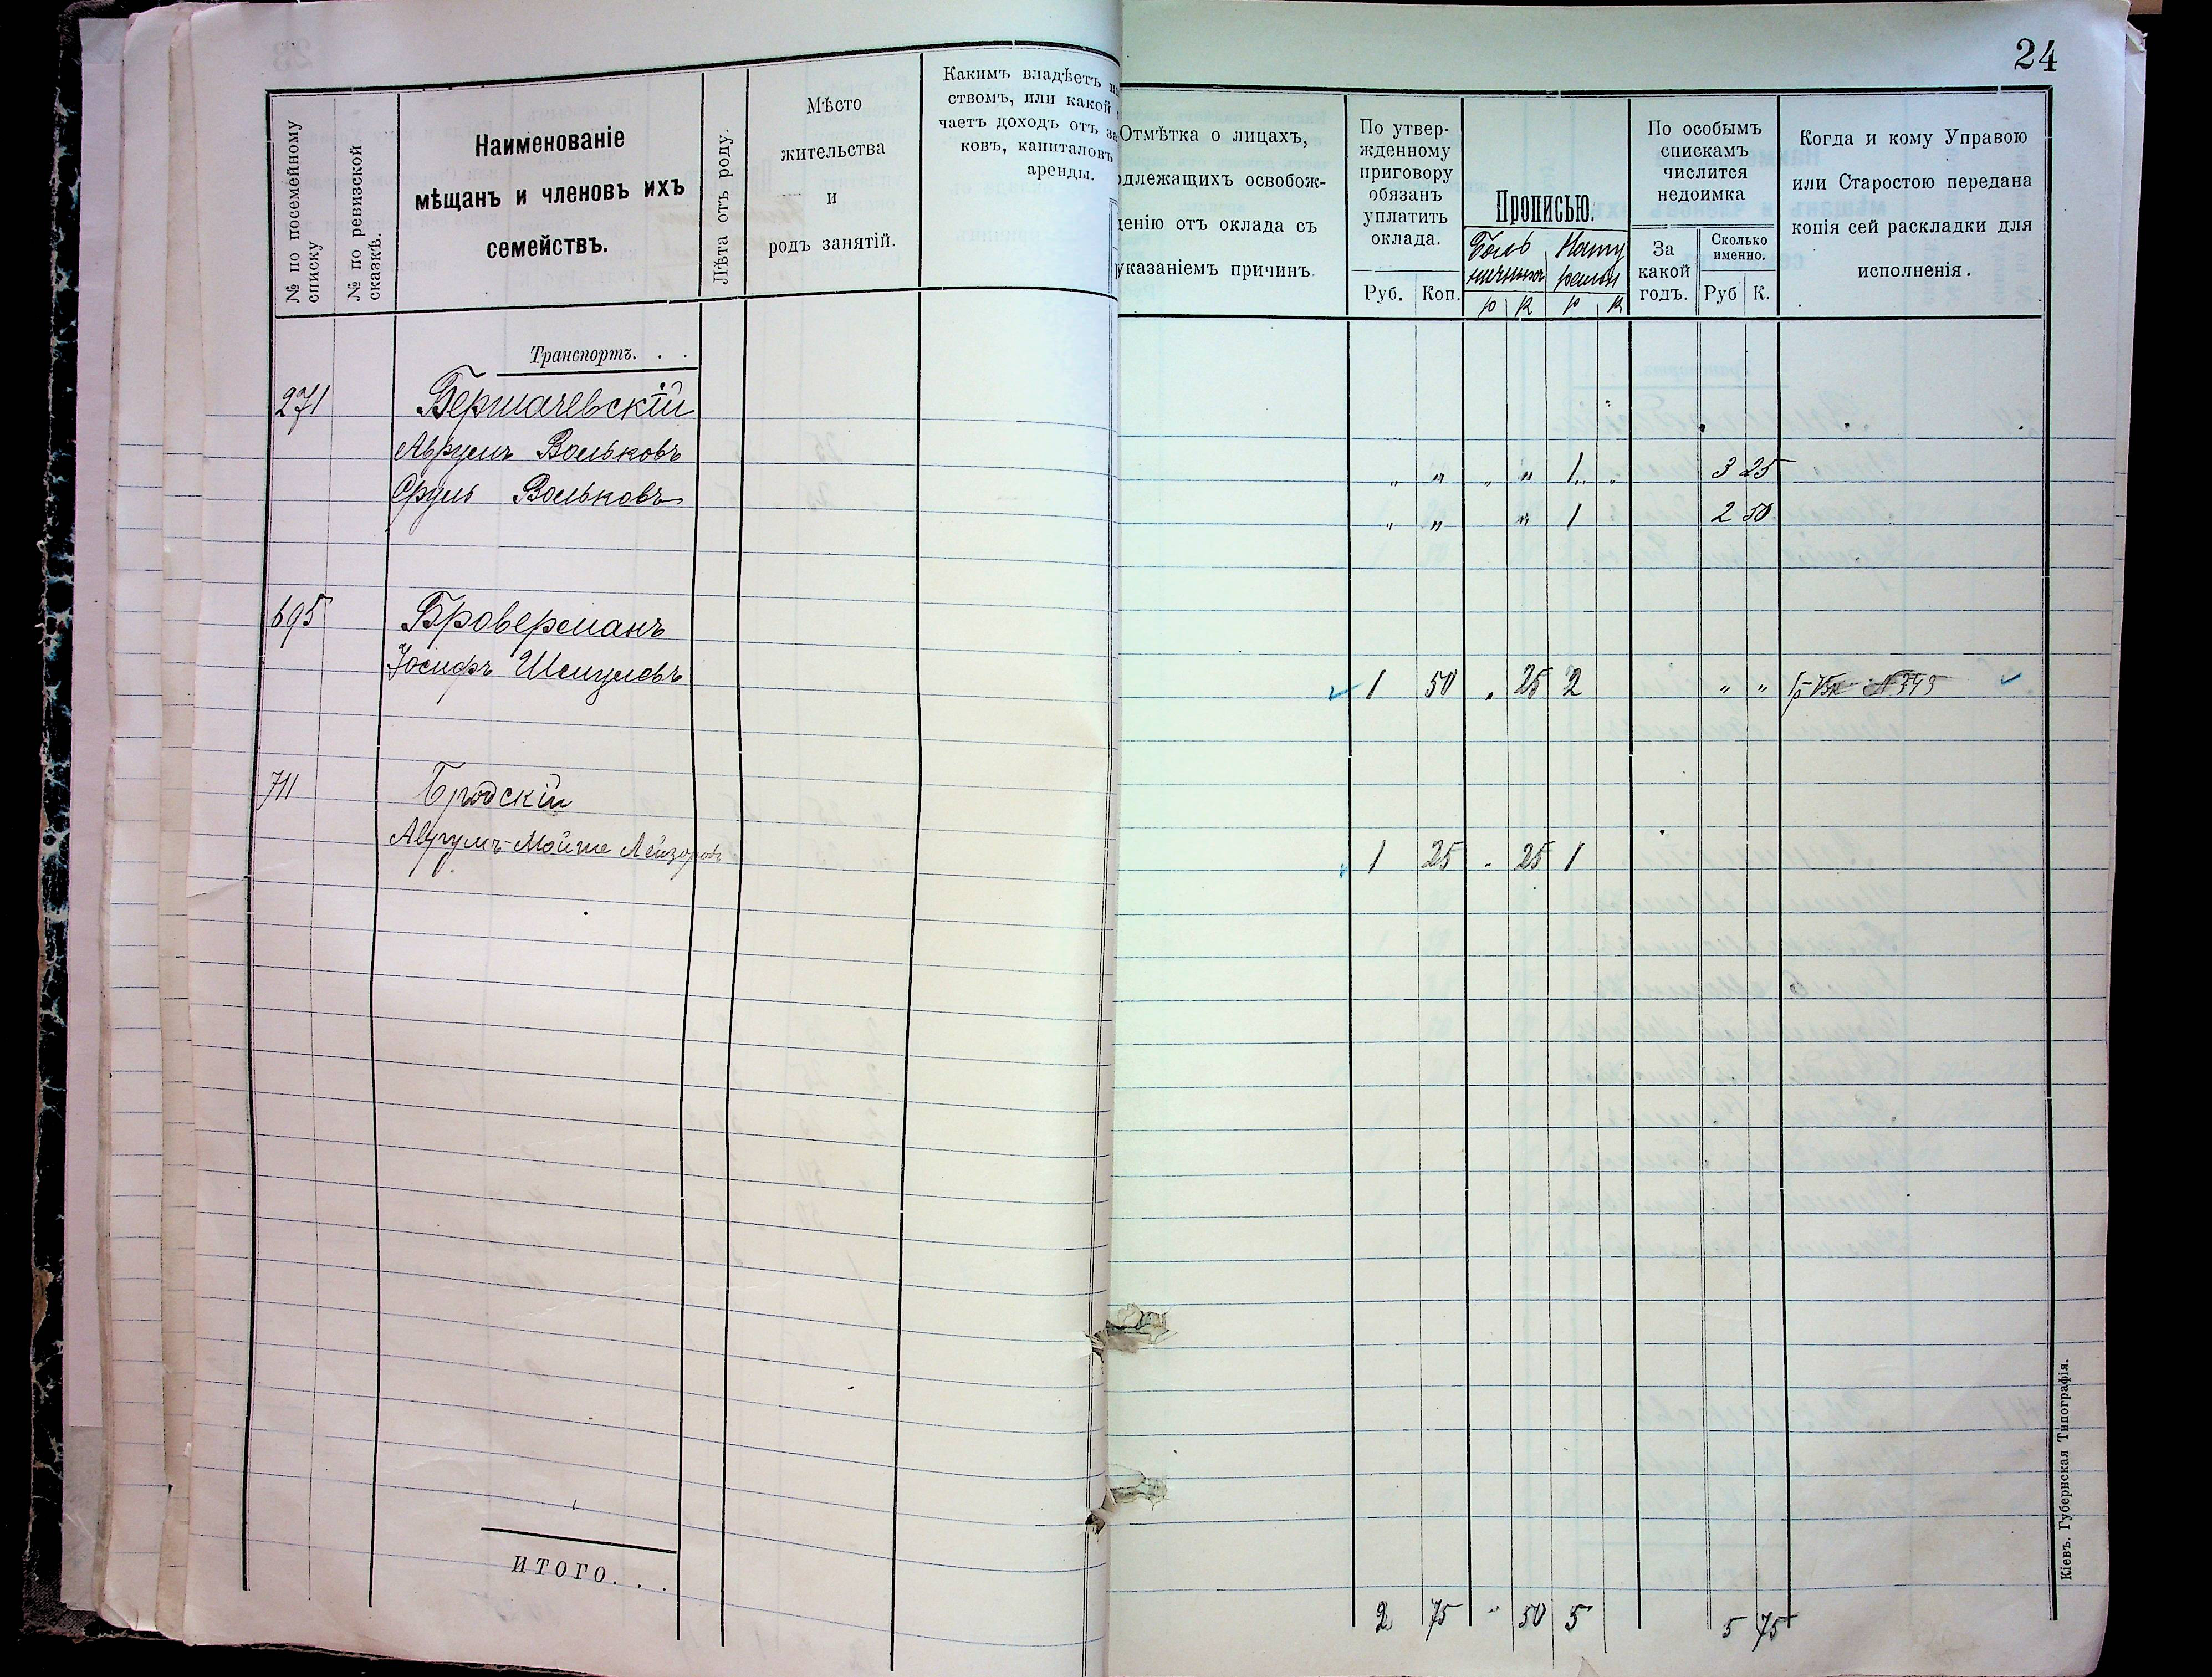 24
№ по посемейному
списку
№ по ревизской
сказкѣ.
Наименованіе
мѣщанъ и членовъ ихъ
семействъ.
Лѣта отъ роду.
Мѣсто
жительства
и
родъ занятій.
Какимъ владѣетъ
ствомъ, или какой
чаетъ доходъ отъ за
ковъ, капиталовъ
аренды.
Отмѣтка о лицахъ,
длежащихъ освобож-
денію отъ оклада съ
указаніемъ причинъ.
По утвер-
жденному
приговору
обязанъ
уплатить
оклада.
Руб. Коп.
Прописью.
Боль Нату
ничныхъ ральн
р к р к
По особымъ
спискамъ
числится
недоимка
За
какой
годъ.
Сколько
именно.
Руб К.
Когда и кому Управою
или Старостою передана
копія сей раскладки для
исполненія.
Транспортъ. . .
271 Бершачевскій
Аврумъ Вольковъ „ „ „ „ 1 „ „ 3 25
Сруль Вольковъ „ „ „ 1 2 50
695 Броверманъ
Іосифъ Шмулевъ 1 50 „ 25 2 „ „
711 Бродскій
Аврумъ-Мойше Лейзоровъ 1 25 „ 25 1
ИТОГО. . .
2 75 „ 50 5 5 75
Кіевъ. Губернская Типографія.